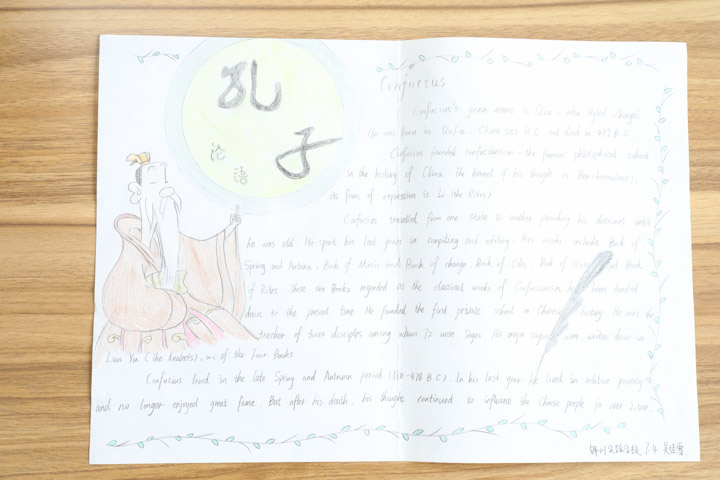 孔子
论语
Confucius
Confucius's given name is Qiu, also styled Zhongni.
He was born in Qufu, China 551 B.C. and died in 479 B.C.
Confucius founded confucianism - the famous philosophical school
in the history of China. The kernel of his thought is
its form of expression is Li (the Rites)
Confucius travelled from one state to another preaching his doctrines until
he was old. He spent his last years in compiling and editing. His works include Book of
Spring and Autumn, Book of Music and Book of change, Book of Odes, Book of and Book
of Rites. These are Books regarded as the classical works of Confucianism been handed
down to the present time. He founded the first private school in Chinese history. He was the
teacher of disciples among whom 72 were Sages. His major were written down in
Lun Yu (The Analects), one of the Four Books.
Confucius lived in the late Spring and Autumn period B.C). In his last year he lived in relative poverty
and no longer enjoyed great fame. But after his death, his thoughts continued to influence the Chinese people for over 2,000.
实验学校 7.4 吴佳雯